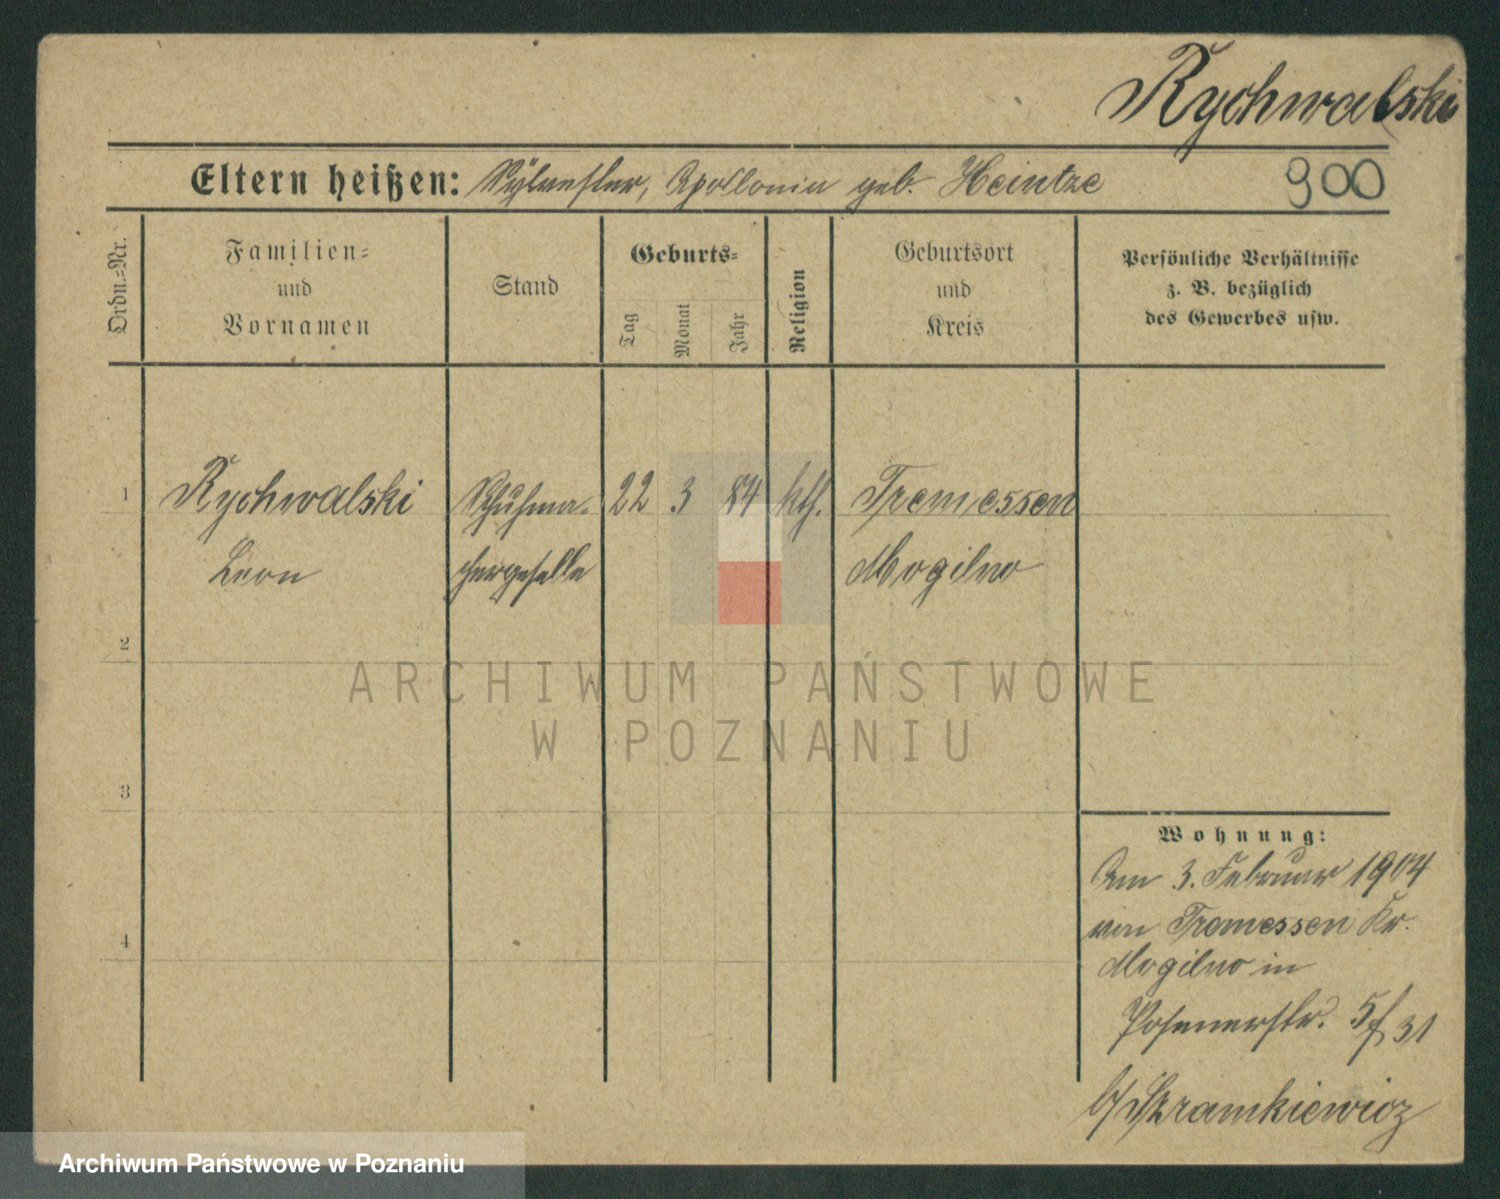 Rychwalski
Eltern heißen: Sylvester, Apollonia geb. Heintze
900
Ordn.=Nr.
Familien=
und
Vornamen
Stand
Geburts=
Tag
Monat
Jahr
Religion
Geburtsort
und
Kreis
Persönliche Verhältnisse
z. B. bezüglich
des Gewerbes usw.
1
Rychwalski
Leon
Schuhma-
chergeselle
22
3
84
kth.
Tremessen
Mogilno
2
3
4
ARCHIWUM PAŃSTWOWE
W POZNANIU
Wohnung:
Am 3. Februar 1904
von Tremessen Kr.
Mogilno in
Posenerstr. 31
b/ Szramkiewicz
Archiwum Państwowe w Poznaniu